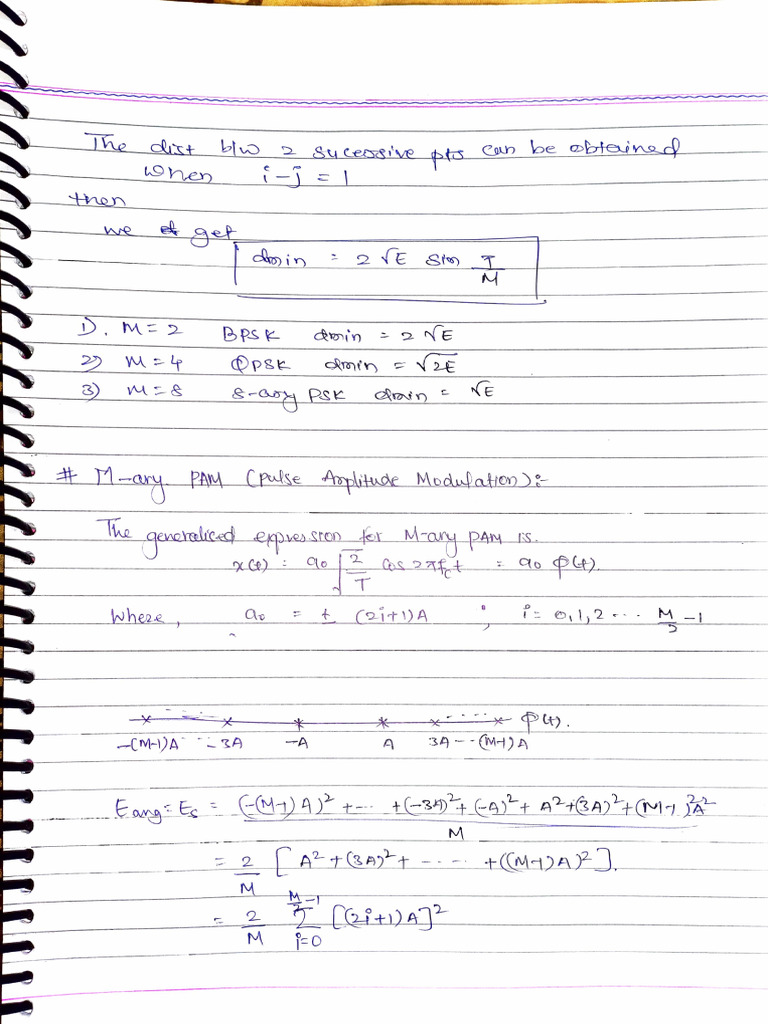 The dist b/w 2 sucessive pts can be obtained
when i-j = 1
then
we get
dmin = 2 √E sin π/M
1). M = 2 BPSK dmin = 2 √E
2) M = 4 QPSK dmin = √2E
3) M = 8 8-ary PSK dmin = √E
# M-ary PAM (Pulse Amplitude Modulation):-
The generalised expression for M-ary PAM is.
x(t) = a0 √2/T cos 2πfct = a0 φ(t).
Where, a0 = ± (2i+1)A ; i = 0,1,2 ... M/2 -1
-(M-1)A ... -3A -A A 3A ... (M-1)A φ(t).
Eavg = Es = ((-(M-1)A)² + ... + (-3A)² + (-A)² + A² + (3A)² + (M-1)²A²)/M
= 2/M [A² + (3A)² + ...... + ((M-1)A)²].
= 2/M Σ i=0 M/2-1 [(2i+1)A]²